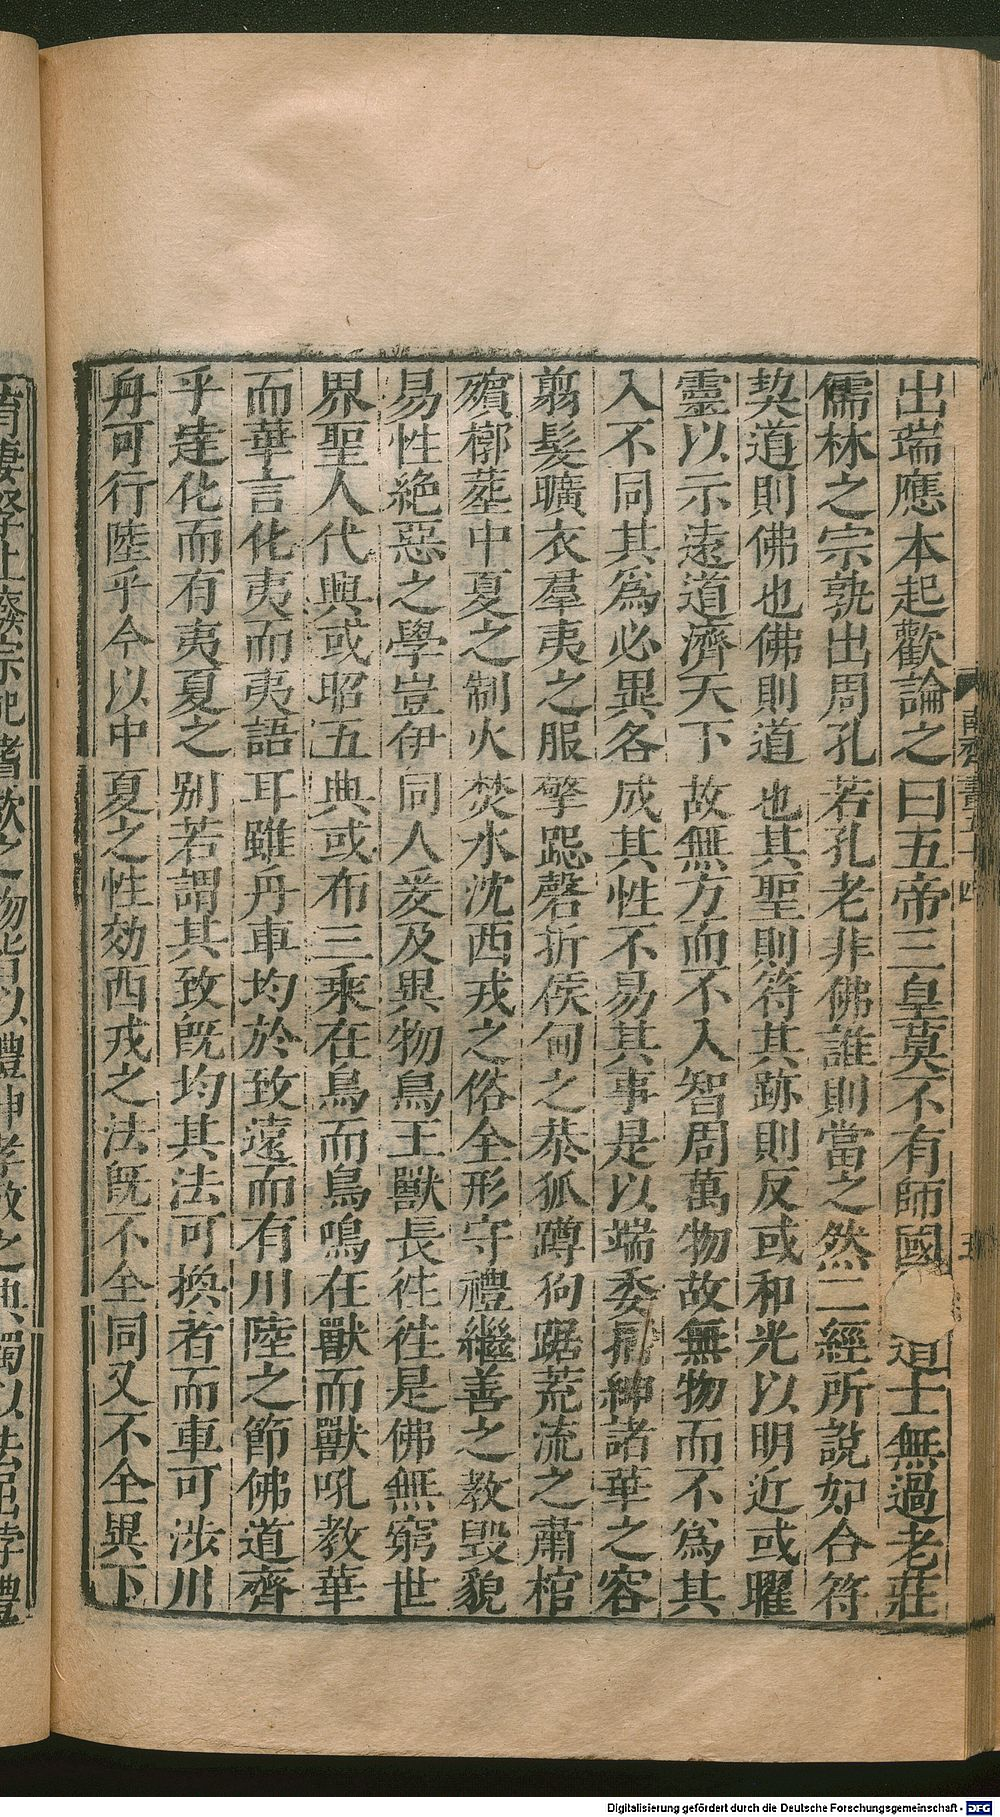 出瑞應本起歡論之曰五帝三皇莫不有師國道士無過老莊
儒林之宗孰出周孔若孔老非佛誰則當之然二經所說如合符
契道則佛也佛則道也其聖則符其跡則反或和光以明近或曜
靈以示遠道濟天下故無方而不入智周萬物故無物而不為其
入不同其為必異各成其性不易其事是以端委搢紳諸華之容
翦髮曠衣羣夷之服擎跽磬折侯甸之恭狐蹲狗踞荒流之肅棺
殯槨葬中夏之制火焚水沈西戎之俗全形守禮繼善之教毀貌
易性絕惡之學豈伊同人爰及異物鳥王獸長往往是佛無窮世
界聖人代興或昭五典或布三乘在鳥而鳥鳴在獸而獸吼教華
而華言化夷而夷語耳雖舟車均於致遠而有川陸之節佛道齊
乎達化而有夷夏之別若謂其致既均其法可換者而車可涉川
舟可行陸乎今以中夏之性效西戎之法既不全同又不全異下
南齊書五十四
五
育妻孥上廢宗祀嗜欲之物皆以禮伸孝敬之典獨以法屈悖禮
Digitalisierung gefördert durch die Deutsche Forschungsgemeinschaft - DFG